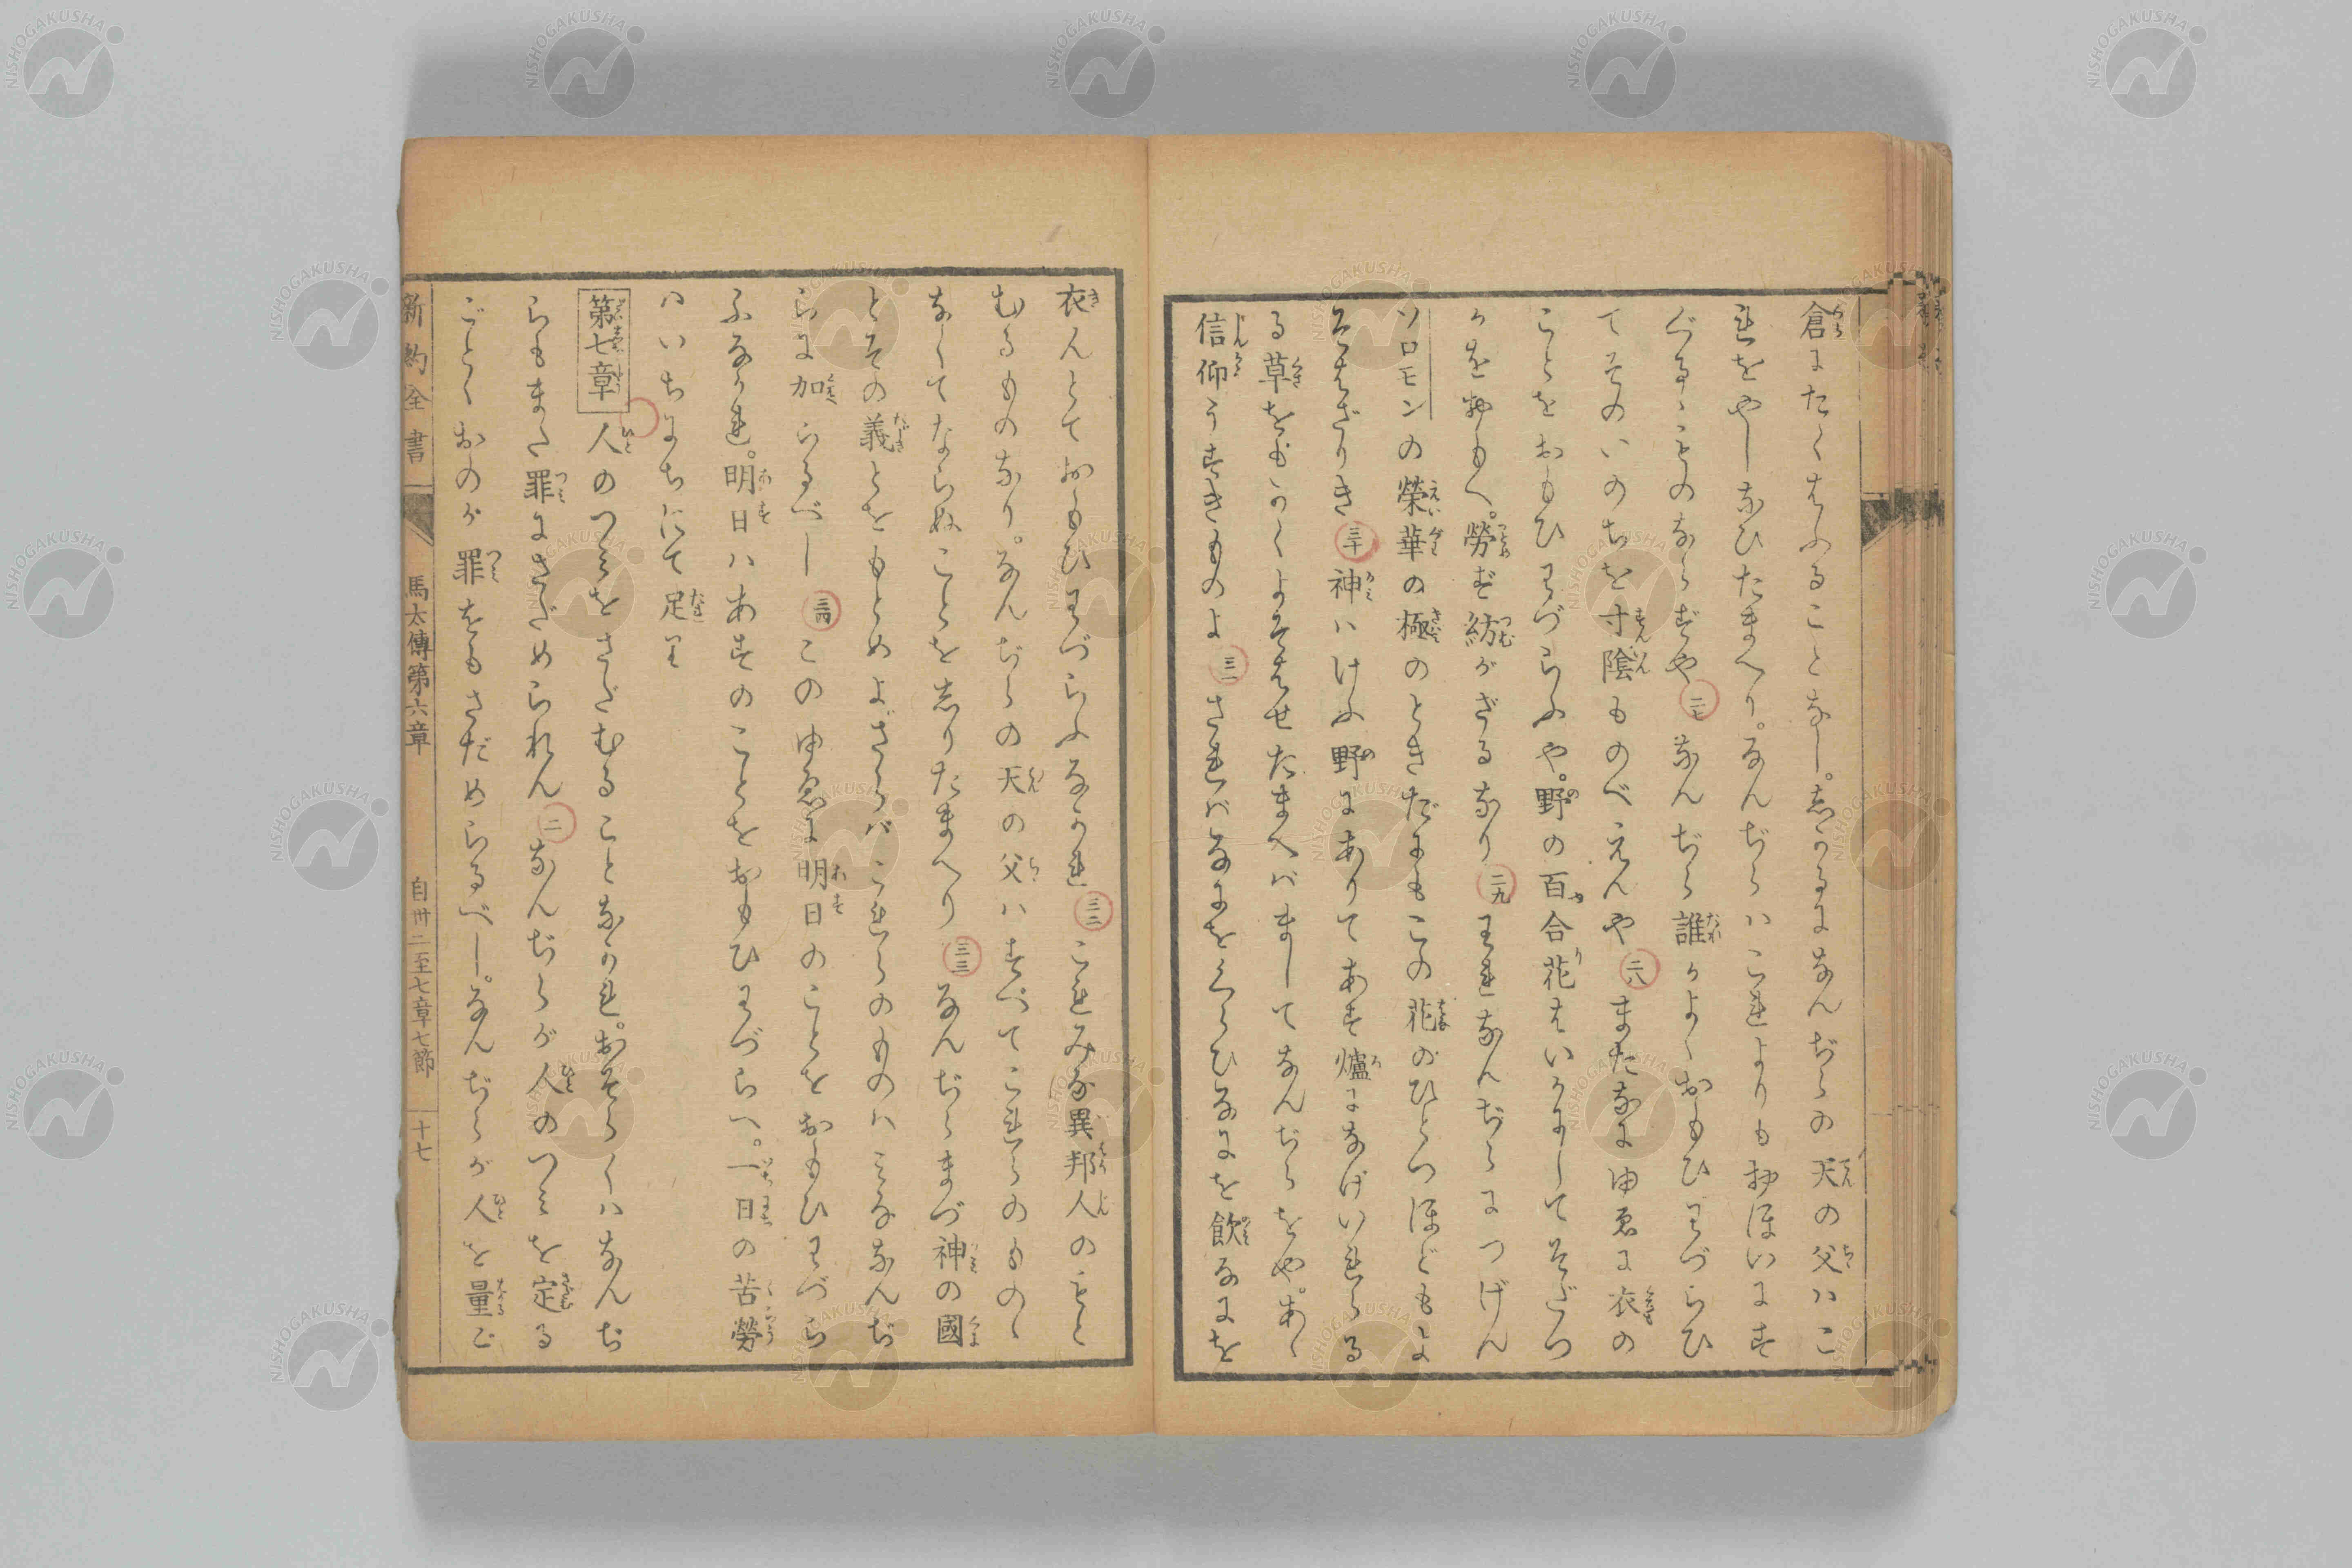 倉にたくはふることなし。しかるになんぢらの天の父ハこ
れをやしなひたまへり。なんぢらハこれよりもおほいにす
ぐるゝものならずや二七なんぢら誰かよくおもひわづらひ
てそのいのちを寸陰ものべえんや二八またなに由ゑに衣の
ことをおもひわづらふや。野の百合花はいかにしてそだつ
かを抑もへ。勞ず紡がざるなり二九われなんぢらにつげん
ソロモンの榮華の極のときだにもこの花のひとつほどもよ
そはざりき三十神ハけふ野にありてあす爐になげいれらる
る草をもかくよそはせたまへバましてなんぢらをや。あゝ
信仰うすきものよ三一さればなにをくらひなにを飲なにを
衣んとておもひわづらふなかれ三二これみな異邦人のもと
むるものなり。なんぢらの天の父ハすべてこれらのものゝ
なくてならぬことをしりたまへり三三なんぢらまづ神の國
とその義とをもとめよさらバこれらのものハみななんぢ
らに加らるべし三四この由ゑに明日のことをおもひわづら
ふなかれ。明日ハあすのことをおもひわづらへ。一日の苦勞
ハいちにちにて足り
第七章 人のつみをさだむることなかれ。おそらくハなんぢ
らもまた罪にさだめられん二なんぢらが人のつミを定る
ごとくおのが罪をもさだめらるべし。なんぢらが人を量ご
新約全書 馬太傳第六章 自卅二至七章七節 十七
NISHOGAKUSHA